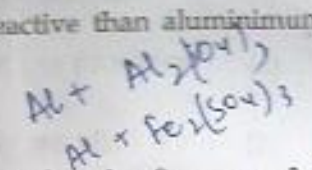 eactive than aluminimum
Al + Al2(SO4)3
Al + Fe2(SO4)3